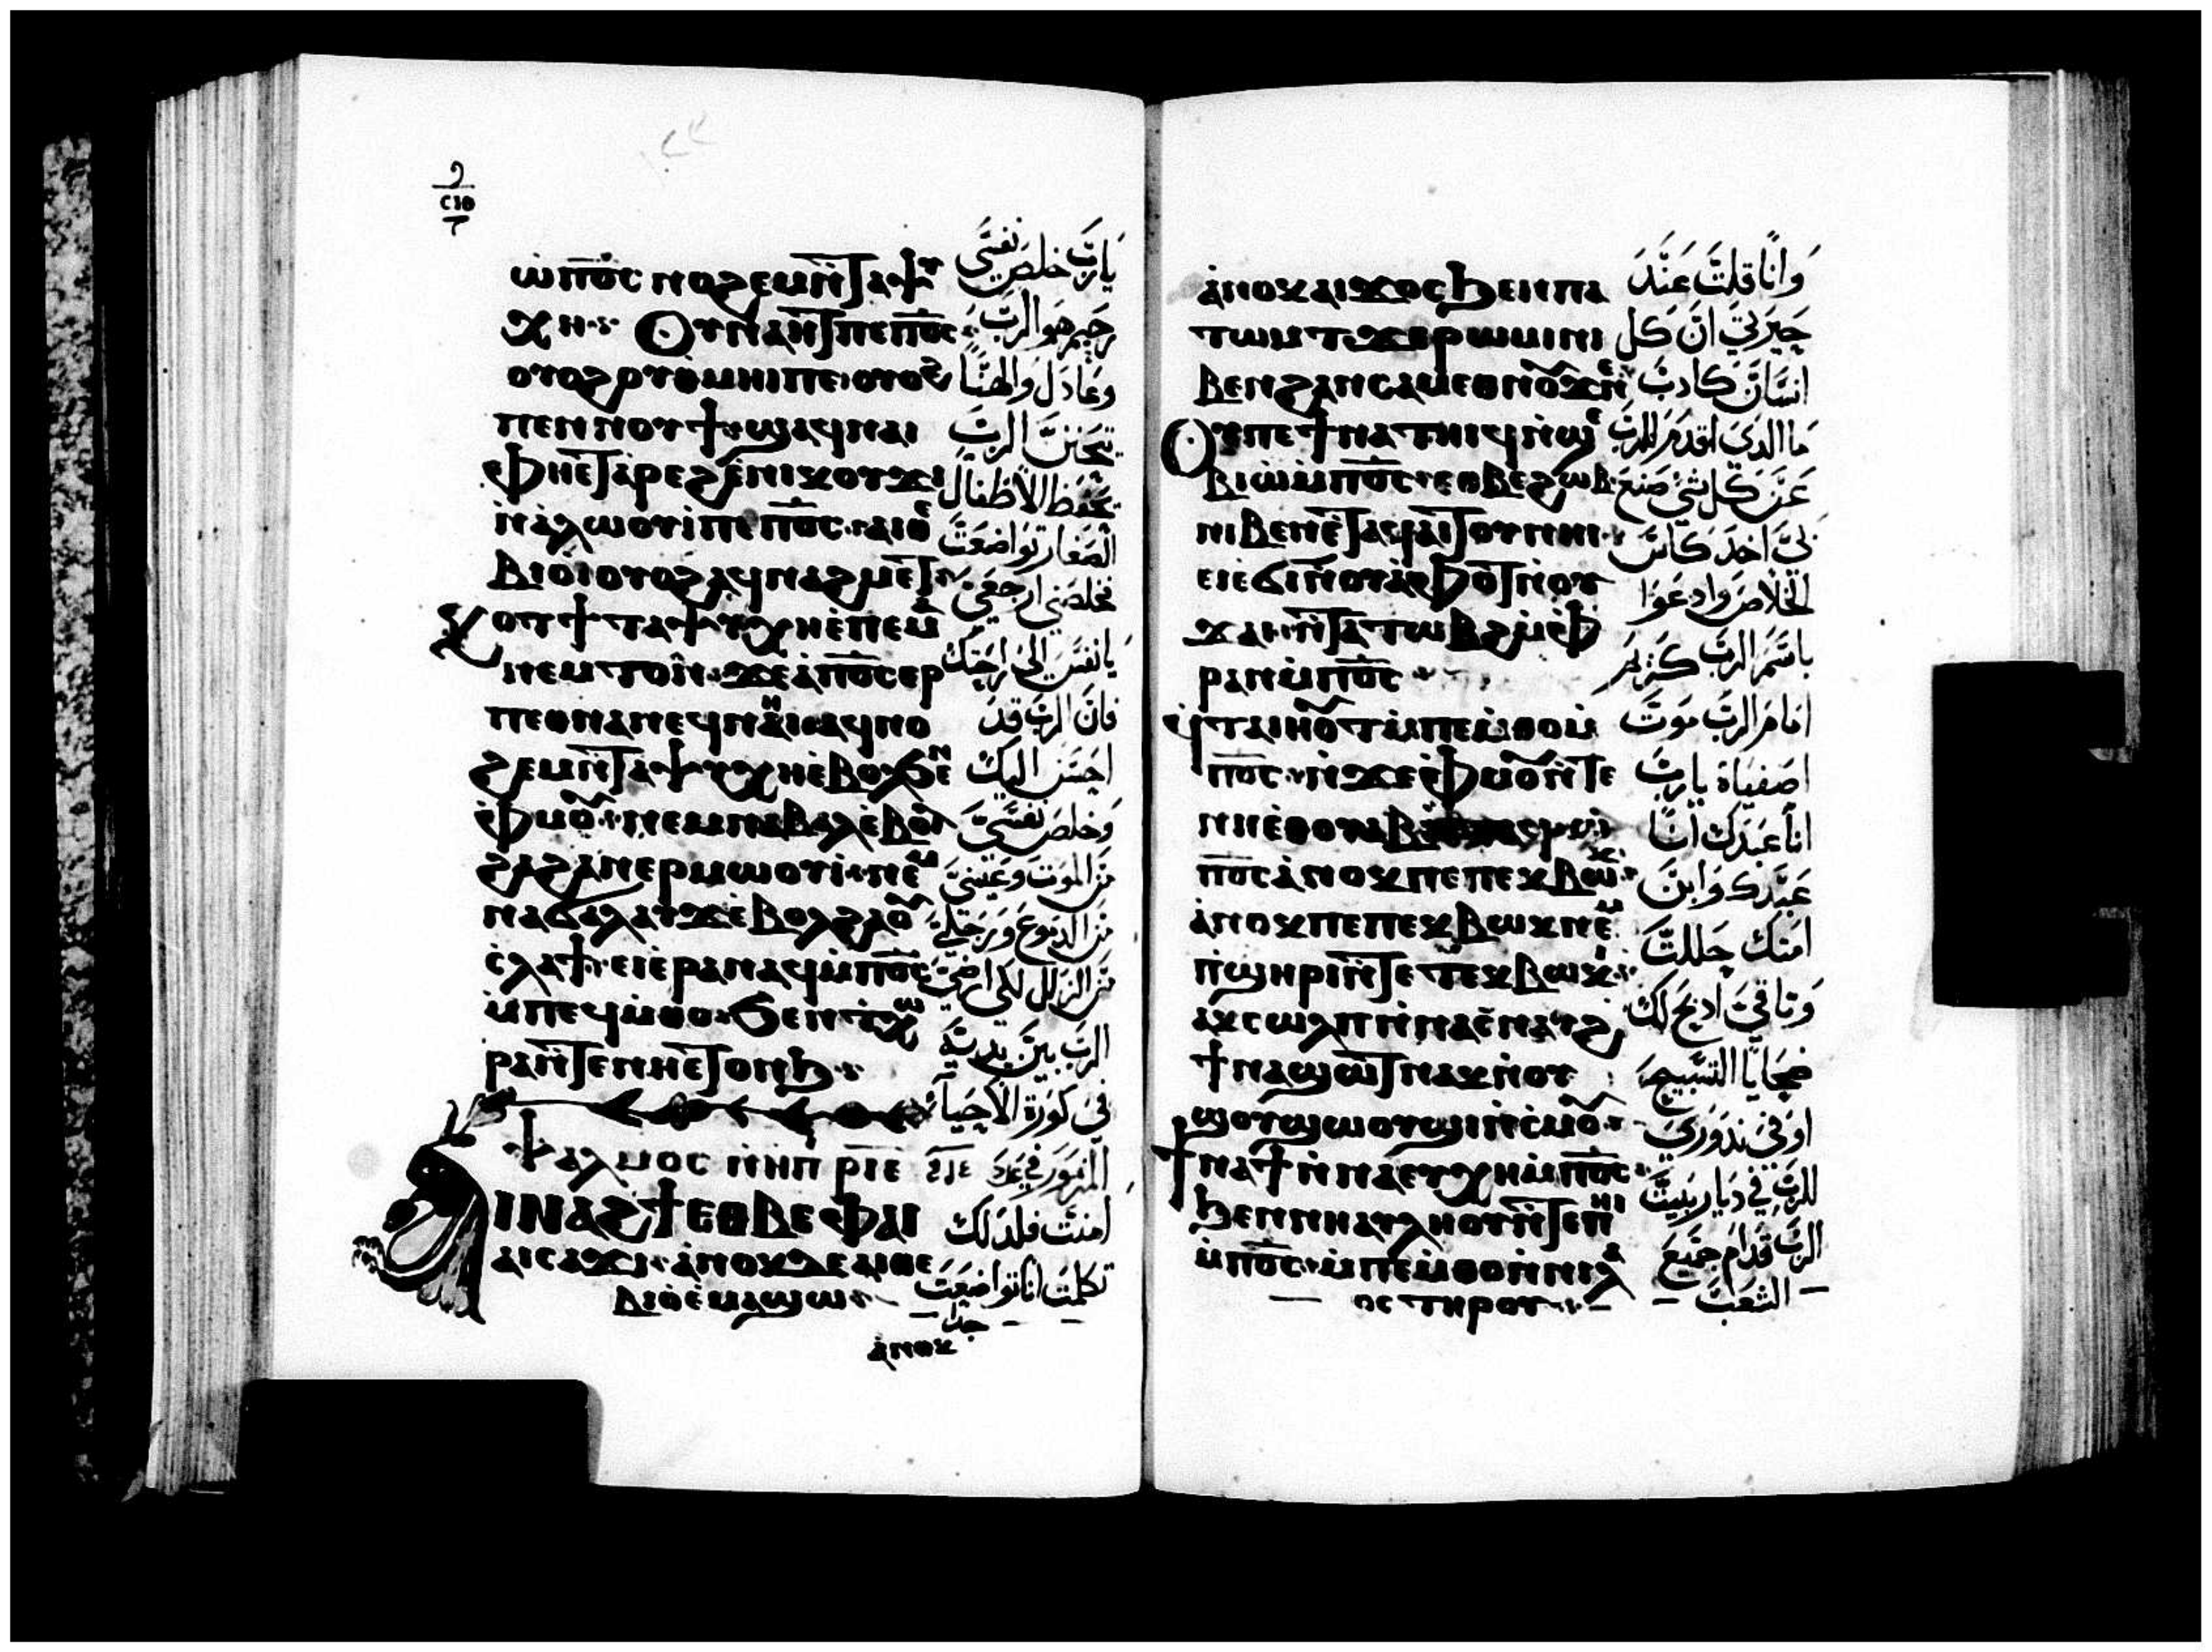 ⲥⲓⲑ
ⲱⲡⲟ̅ⲥ̅ ⲛⲟϩⲉⲙ ⲛ̀ⲧⲁⲯⲩ
ⲭⲏ ⲟⲩⲛⲁⲏⲧ ⲡⲉ ⲡⲟ̅ⲥ̅
ⲟⲩⲟϩ ⲟⲩⲑⲙⲏⲓ ⲡⲉ ⲟⲩⲟϩ
ⲡⲉⲛⲛⲟⲩϯ ϣⲁϥⲛⲁⲓ
ⲫⲏⲉⲧⲁⲣⲉϩ ⲉ̀ⲛⲓⲕⲟⲩϫⲓ
ⲛ̀ⲁⲗⲱⲟⲩⲓ̀ ⲡⲉ ⲡⲟ̅ⲥ̅ ⲁⲓⲑⲉ
ⲃⲓⲟⲓ ⲟⲩⲟϩ ⲁϥⲛⲁϩⲙⲉⲧ
ⲕⲟⲧϯ ⲧⲁⲯⲩⲭⲏ ⲉ̀ⲡⲉⲙⲁ
ⲛⲉⲙⲧⲟⲛ ϫⲉ ⲁ̀ⲡⲟ̅ⲥ̅ ⲉⲣ
ⲡⲉⲑⲛⲁⲛⲉϥ ⲛⲏⲓ ⲁϥⲛⲟ
ϩⲉⲙ ⲛ̀ⲧⲁⲯⲩⲭⲏ ⲉ̀ⲃⲟⲗϧⲉⲛ
ⲫⲙⲟⲩ ⲛⲉⲙ ⲛⲁⲃⲁⲗ ⲉ̀ⲃⲟⲗ
ϩⲁϩⲁⲛⲉⲣⲙⲱⲟⲩⲓ̀ ⲛⲉⲙ
ⲛⲁϭⲁⲗⲁⲩϫ ⲉ̀ⲃⲟⲗϩⲁⲟⲩ
ⲥⲗⲁϯ ⲉⲓⲉ̀ⲣⲁⲛⲁϥ ⲙ̀ⲡⲟ̅ⲥ̅
ⲙ̀ⲡⲉϥⲙ̀ⲑⲟ ϧⲉⲛ ϯⲭⲱ
ⲣⲁ ⲛ̀ⲧⲉ ⲛⲏⲉⲧⲟⲛϧ
ⲯⲁⲗⲙⲟⲥ ⲛ̀ⲏⲡ ⲣⲓⲉ
ⲓⲛⲁϩϯ ⲉⲑⲃⲉⲫⲁⲓ
ⲁⲓⲥⲁϫⲓ ⲁ̀ⲛⲟⲕ ⲇⲉ ⲁⲓⲑⲉ
ⲃⲓⲟ̀ ⲉ̀ⲙⲁϣⲱ
ⲁ̀ⲛⲟⲕ
يارب خلص نفسي
رحيم هو الرب
وعادل والهنا
يتحنن الرب
يحفظ الاطفال
الصغار تواضعت
فخلصني ارجعي
يا نفس الى راحتك
فان الرب قد
احسن اليك
وخلص نفسي
من الموت وعيني
من الدموع ورجلي
من الزلل لكي ارضي
الرب بين يديه
في كورة الاحياء
المزمور في عدد
امنت فلذلك
تكلمت انا تواضعت
جدا
ⲁ̀ⲛⲟⲕ ⲁⲓϫⲟⲥ ϧⲉⲛ ⲡⲁ
ⲧⲱⲙⲧ ϫⲉ ⲣⲱⲙⲓ ⲛⲓ
ⲃⲉⲛ ϩⲁⲛⲥⲁⲙⲉⲑⲛⲟⲩϫ ⲛⲉ
ⲟⲩ ⲡⲉϯⲛⲁⲧⲏⲓϥ ⲛ̀ϣⲉ
ⲃⲓⲱ̀ ⲙ̀ⲡⲟ̅ⲥ̅ ⲉⲑⲃⲉ ϩⲱⲃ
ⲛⲓⲃⲉⲛ ⲉ̀ⲧⲁϥⲁⲓⲧⲟⲩ ⲛⲏⲓ
ⲉⲓⲉϭⲓ ⲛ̀ⲟⲩⲁⲫⲟⲧ ⲛ̀ⲟⲩ
ϫⲁⲓ ⲛ̀ⲧⲁⲧⲱⲃϩ ⲙ̀ⲫ
ⲣⲁⲛ ⲙ̀ⲡⲟ̅ⲥ̅
ϥⲧⲁⲓⲏⲟⲩⲧ ⲙ̀ⲡⲉⲙ̀ⲑⲟ ⲙ̀
ⲡⲟ̅ⲥ̅ ⲛ̀ϫⲉ ⲫⲙⲟⲩ ⲛ̀ⲧⲉ
ⲛⲏⲉ̀ⲑⲟⲩⲁⲃ
ⲡⲟ̅ⲥ̅ ⲁ̀ⲛⲟⲕ ⲡⲉ ⲡⲉⲕⲃⲱⲕ
ⲁ̀ⲛⲟⲕ ⲡⲉ ⲡⲉⲕⲃⲱⲕ ⲛⲉⲙ
ⲡ̀ϣⲏⲣⲓ ⲛ̀ⲧⲉ ⲧⲉⲕⲃⲱⲕⲓ
ⲁⲕⲥⲱⲗⲡ ⲛ̀ⲛⲁⲥ̀ⲛⲁⲩϩ
ϯⲛⲁϣⲱⲧ ⲛⲁⲕ ⲛ̀ⲟⲩ
ϣⲟⲩϣⲱⲟⲩϣⲓ ⲛ̀ⲥ̀ⲙⲟⲩ
ϯⲛⲁϯ ⲛ̀ⲛⲁⲉⲩⲭⲏ ⲙ̀ⲡⲟ̅ⲥ̅
ϧⲉⲛ ⲛⲓⲁⲩⲗⲏⲟⲩ ⲛ̀ⲧⲉ ⲡⲏⲓ
ⲙ̀ⲡⲟ̅ⲥ̅ ⲙ̀ⲡⲉⲙ̀ⲑⲟ ⲛ̀ⲛⲓⲗⲁ
ⲟⲥ ⲧⲏⲣⲟⲩ
وانا قلت عند
حيرتي ان كل
انسان كادب
ما الدي اقدم للرب
عن كل شي صنع
لي اخد كاس
الخلاص وادعوا
باسم الرب كريم
امام الرب موت
اصفياه يارب
انا عبدك انا
عبدك وابن
امتك حللت
وتاقي ادبح لك
ضحايا التسبيح
اوفي ندوري
للرب في ديار بيت
الرب قدام جميع
الشعب